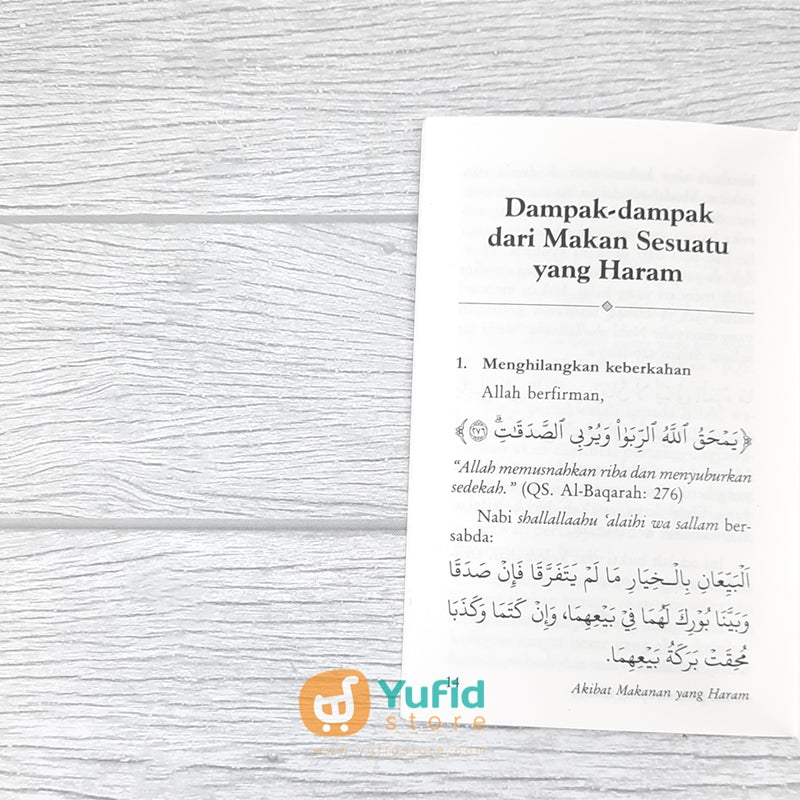 Dampak-dampak
dari Makan Sesuatu
yang Haram
1. Menghilangkan keberkahan
Allah berfirman,
﴿يَمْحَقُ ٱللَّهُ ٱلرِّبَوٰا۟ وَيُرْبِى ٱلصَّدَقَـٰتِ ۗ ٢٧٦﴾
“Allah memusnahkan riba dan menyuburkan
sedekah.” (QS. Al-Baqarah: 276)
Nabi shallallaahu ‘alaihi wa sallam ber-
sabda:
اَلْبَيِّعَانِ بِالْـخِيَارِ مَا لَمْ يَتَفَرَّقَا فَإِنْ صَدَقَا
وَبَيَّنَا بُوْرِكَ لَهُمَا فِيْ بَيْعِهِمَا، وَإِنْ كَتَمَا وَكَذَبَا
مُحِقَتْ بَرَكَةُ بَيْعِهِمَا.
14
Akibat Makanan yang Haram
Yufid
store
www.yufidstore.com